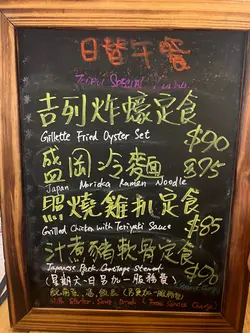 日替午餐
吉列炸蠔定食
Gillette Fried Oyster Set $90
盛岡冷麵
Japan Morioka Ramen Noodle $75
照燒雞扒定食
Grilled Chicken with Teriyaki Sauce $85
汁煮豬軟骨定食
Japanese Pork Cartilage Stewed $90
(星期六-日另加一服務費)